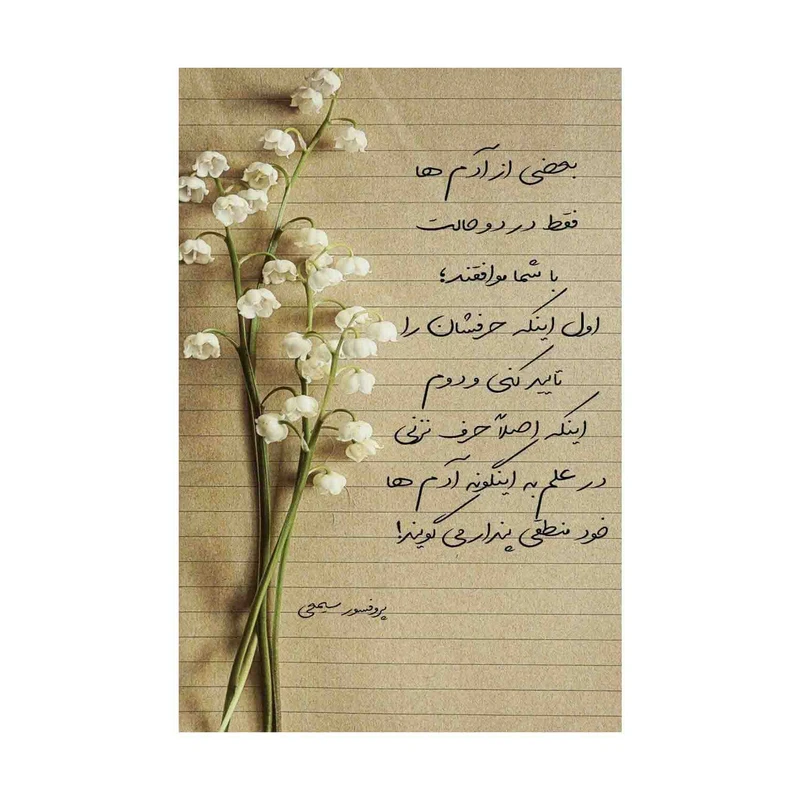 بعضی از آدم ها
فقط در دو حالت
با شما موافقند؛
اول اینکه حرفشان را
تایید کنی و دوم
اینکه اصلاً حرف نزنی
در علم به اینگونه آدم ها
خود منطقی پندار می گویند!
پروفسور سمیعی